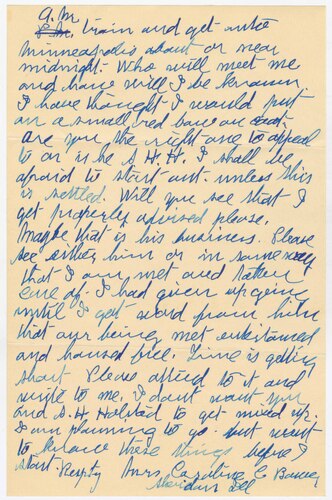 A.M.
P.M. train and get into
Minneapolis about or near
midnight. Who will meet me
and how will I be known
I have thought I would put
on a small red bow on coat.
are you the right one to appeal
to or is he S.H.H. I shall be
afraid to start out unless this
is settled. Will you see that I
get properly advised please.
Maybe that is his business. Please
see either him or in some way
that I am met and taken
care of. I had given up going
until I got word from him
that our being met entertained
and housed free. Time is getting
short Please attend to it and
write to me. I don't want you
and S.H. Holstad to get mixed up.
I am planning to go. but want
to know these things before I
start. Respty Mrs. Caroline E
Sheridan Ill